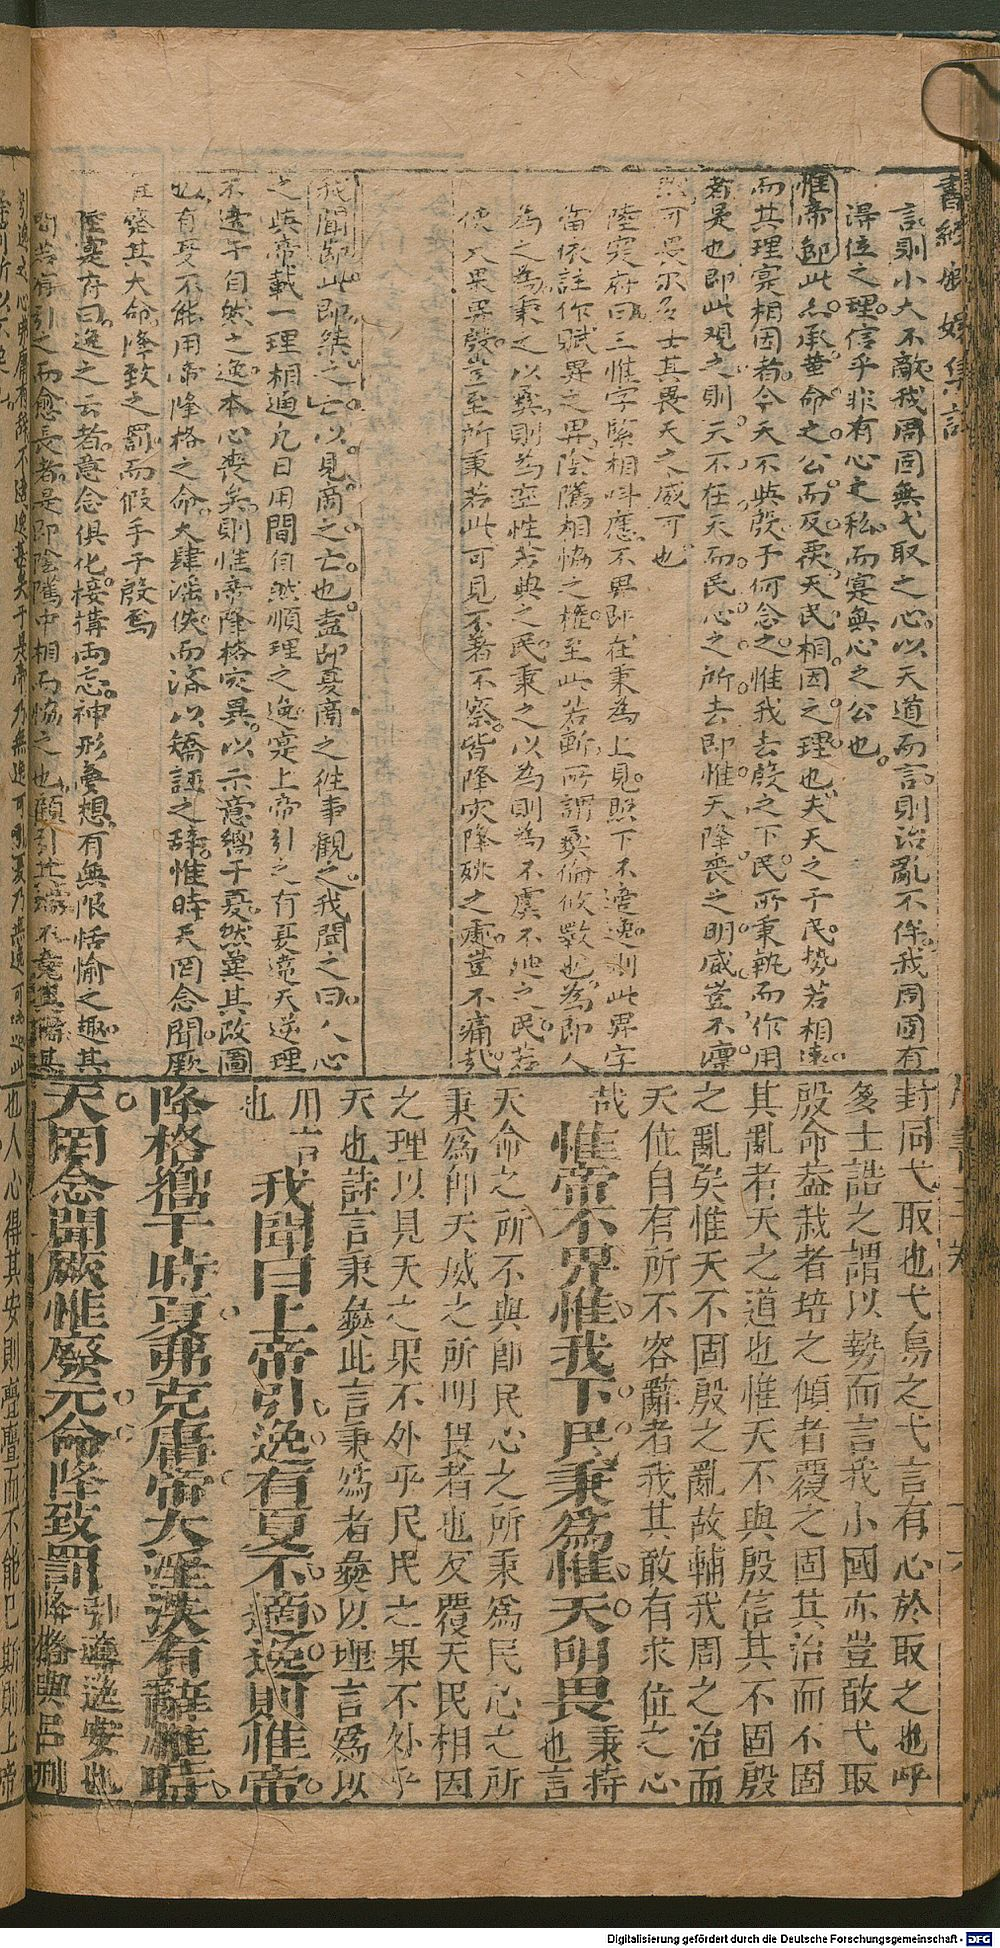 書經嫏嬛集註
言則小大不敵我周固無弋取之心以天道而言則治亂不侔我周固有
得位之理信乎非有心之私而寔無心之公也
惟帝節此亦承華命之公而反覆天民相因之理也夫天之于民勢若相遠
而其理寔相因者今天不與殷予何念之惟我去殷之下民所秉執而作用
者是也即此觀之則天不在天而民心之所去即惟天降喪之明威豈不凜
可畏爾多士其畏天之威可也
陸寔府曰三惟字緊相呌應不畀即在秉為上見照下不適逸則此畀字
當依註作賦畀之畀陰隲相協之權至此若斬所謂彝倫攸斁也為即人
為之為秉之以彝則為恆性若典之民秉之以為則為不虞不迪之民若
使天果畀殷豈至所秉若此可見不著不察皆降灾降殃之處豈不痛哉
我聞節此即桀之亡以見商之亡也蓋即夏商之徃事觀之我聞之曰人心
之與帝載一理相通凡日用間自然順理之逸寔上帝引之有夏違天逆理
不適于自然之逸本心喪矣則惟帝降格灾異以示意嚮于夏然兾其改圖
也有夏不能用帝降格之命大肆滛佚而済以矯誣之辞惟時天罔念聞厥
廢其大命降致之罰而假手于殷焉
陸寔府曰逸之云者意念俱化棲搆両忘神形夢想有無限恬愉之趣其
間若有引之而愈長者是即陰隲中相而恊之也
封同弋取也弋鳥之弋言有心於取之也呼
多士誥之謂以勢而言我小國亦豈敢弋取
殷命葢栽者培之傾者覆之固其治而不固
其亂者天之道也惟天不與殷信其不固殷
之亂矣惟天不固殷之亂故輔我周之治而
天位自有所不容辭者我其敢有求位之心
哉　惟帝不畀惟我下民秉為惟天明畏秉持也言
天命之所不與即民心之所秉為民心之所
秉為即天威之所明畏者也反覆天民相因
之理以見天之果不外乎民民之果不外乎
天也詩言秉彝此言秉為者彝以理言為以
用言
也　我聞曰上帝引逸有夏不適逸則惟帝
降格嚮于時夏弗克庸帝大淫泆有辭惟時
天罔念聞厥惟廢元命降致罰引導逸安也降格與呂刑
也人心得其安則亹亹而不能已斯則上帝